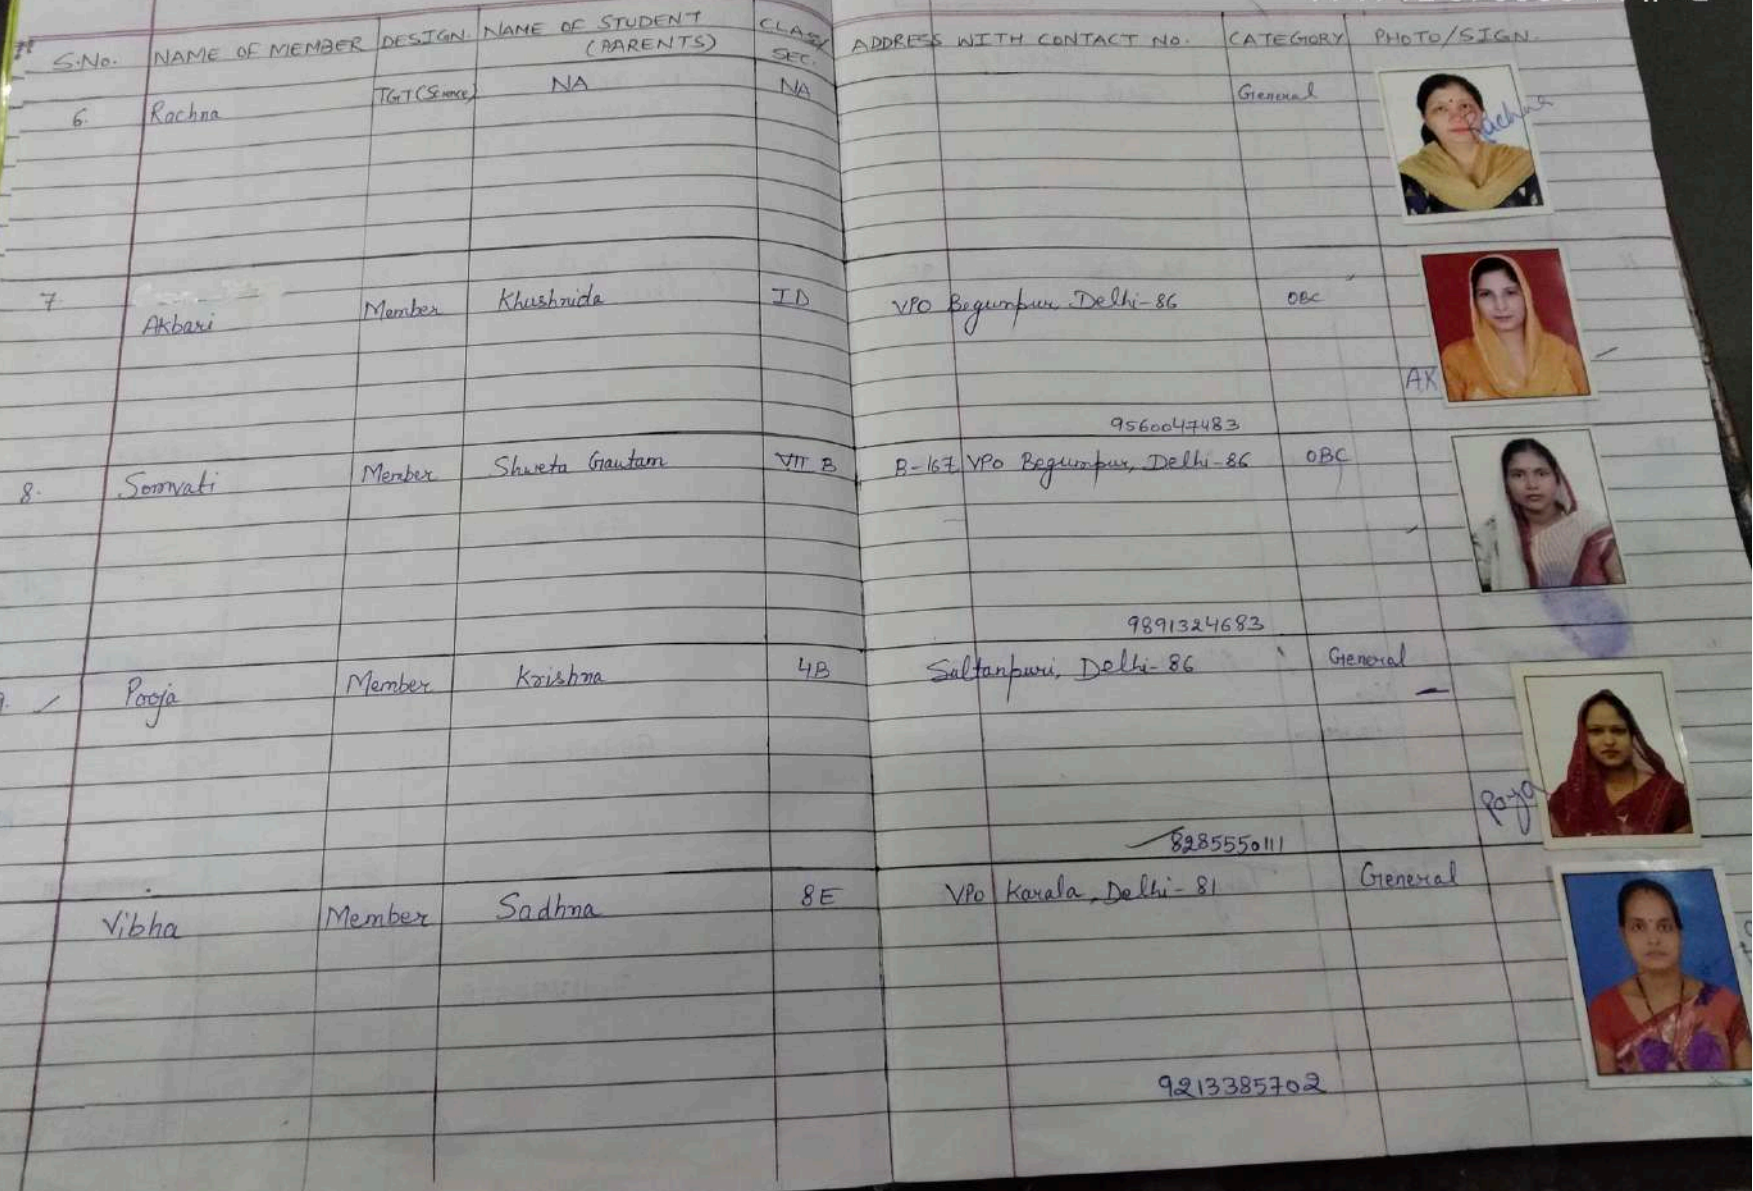 S.No. NAME OF MEMBER DESIGN. NAME OF STUDENT (PARENTS) CLASS/ SEC. ADDRESS WITH CONTACT NO. CATEGORY PHOTO/SIGN.
6. Rachna TGT (Science) NA NA General Rachna
7 Akbari Member Khushnida I D VPO Begumpur Delhi-86 OBC
AK
9560047483
8. Somvati Member Shweta Gautam VII B B-167 VPO Begumpur, Delhi-86 OBC
9891324683
9. Pooja Member Krishna 4B Sultanpuri, Delhi-86 General
Pooja
8285550111
Vibha Member Sadhna 8E VPO Karala, Delhi-81 General
9213385702